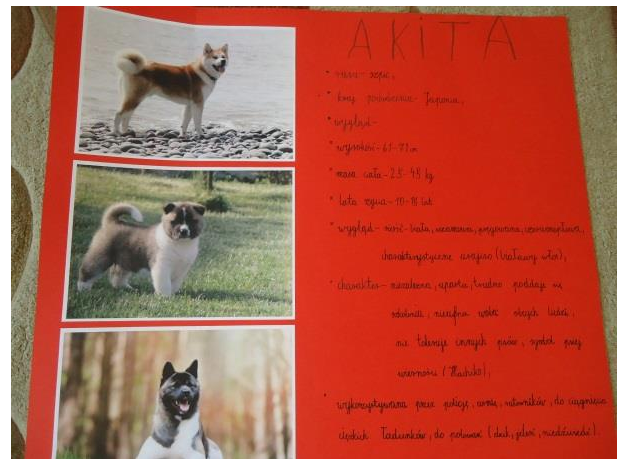 AKITA
• kraj pochodzenia - Japonia,
• wygląd -
• wysokość - 61-71 cm
• masa ciała - 23-45 kg
• lata życia - 10-15 lat
• wygląd - maść - biała,
charakterystyczne urajiro (białawy włos),
• charakter - niezależna, uparta, trudno poddaje się
szkoleniu, nieufna wobec obcych ludzi,
nie toleruje innych psów, symbol psiej
wierności (Hachiko),
• wykorzystywana przez policję, ratowników, do ciągnięcia
ciężkich ładunków, do polowań (dzik, jeleń, niedźwiedź).